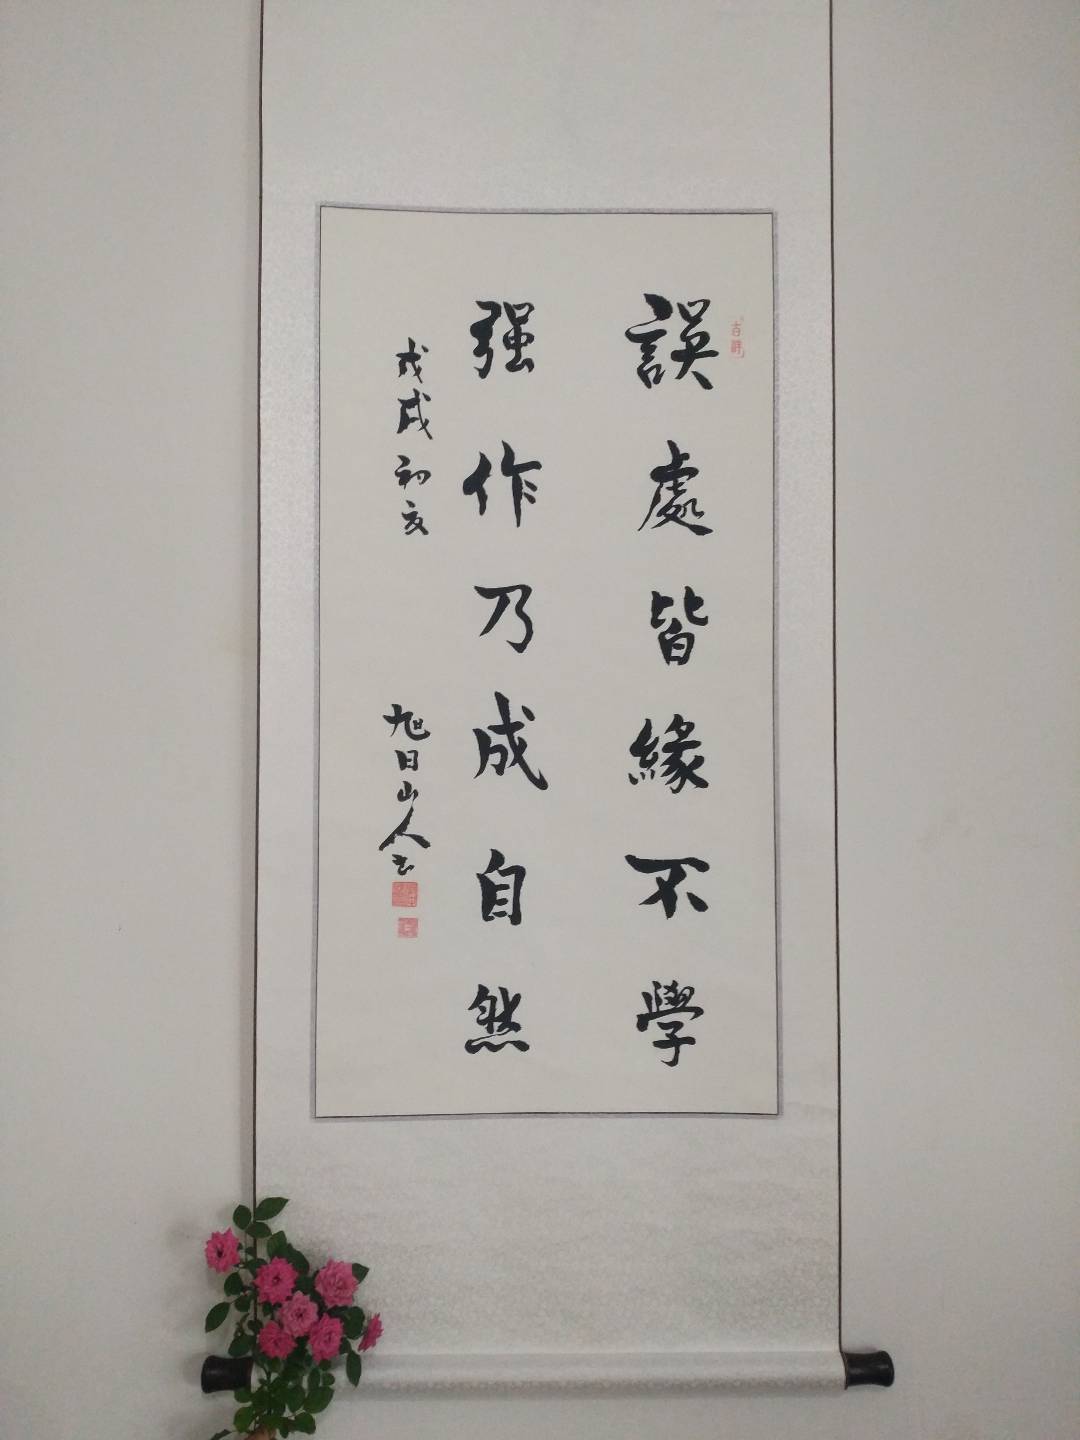 誤處皆緣不學
强作乃成自然
戊戌初夏
旭日山人书